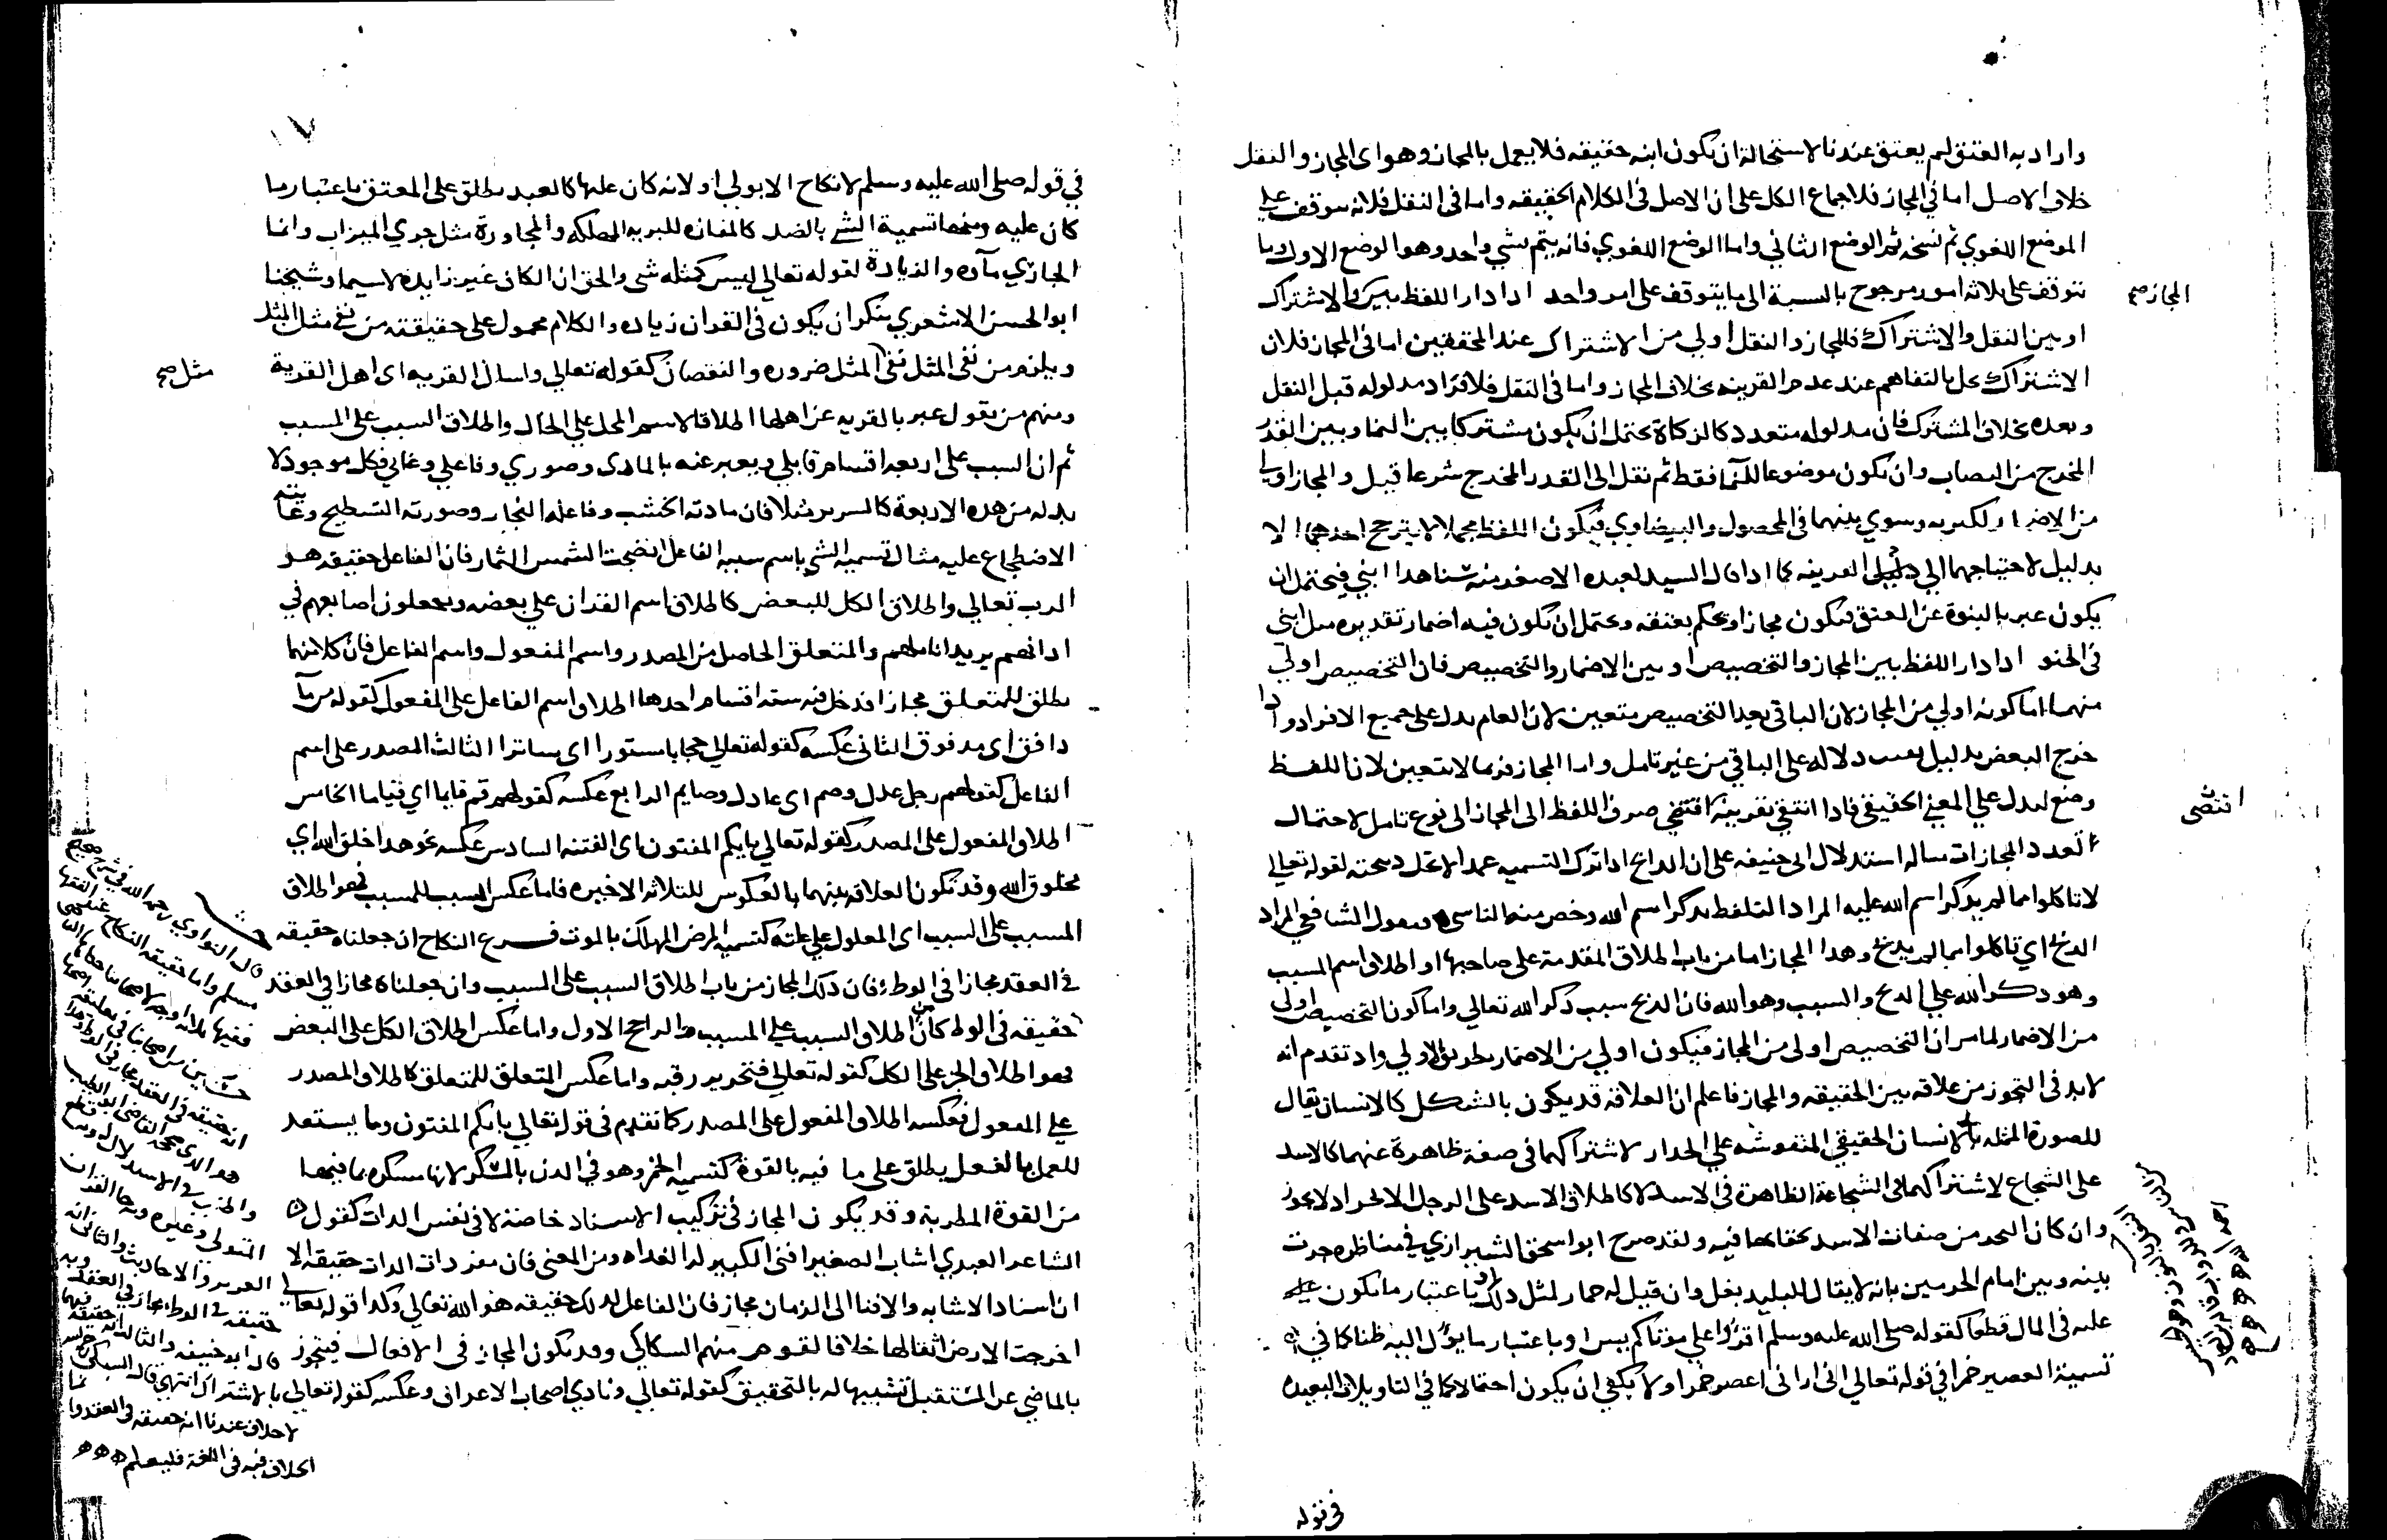 واراد به العتق لم يعتق عندنا لاستحالة ان يكون ابنه حقيقه فلا يعمل بالمجاز وهو اى المجاز والنقل
خلاف الاصل اما في المجاز فلاجماع الكل على ان الاصل في الكلام الحقيقه واما في النقل فلانه يتوقف على
الموضع اللغوي ثم نسخه ثم الوضع الثاني واما الوضع اللغوي فانه يتم بشي واحد وهو الوضع الاول وما
يتوقف على ثلاثه امور مرجوح بالنسبة الى ما يتوقف على امر واحد اذا دار اللفظ بين والاشتراك
المجاز صح
او بين النقل والاشتراك فالمجاز والنقل اولي من الاشتراك عند المحققين اما في المجاز فلان
الاشتراك يخل بالتفاهم عند عدم القرينه بخلاف المجاز واما في النقل فلافراد مدلوله قبل النقل
وبعده بخلاف المشترك فان مدلوله متعدد كالزكاة يحتمل ان يكون مشتركا بين النما وبين القدر
المخرج من النصاب وان يكون موضوعا للنما فقط ثم نقل الى القدر المخرج شرعا قيل والمجاز اولى
من الاضمار لكثرته وسوي بينهما في المحصول والبيضاوي فيكون اللفظ مجملا لا يترجح احدهما الا
بدليل لاحتياجهما الي القرينه كما اذا قال السيد لعبده الاصغر منه سنا هذا ابني فيحتمل ان
يكون عبر بالبنوة عن العتق فيكون مجازا ويحكم بعتقه ويحتمل ان يكون فيه اضمار تقديره مثل ابني
في الحنو اذا دار اللفظ بين المجاز والتخصيص او بين الاضمار والتخصيص فان التخصيص اولي
منهما اما كونه اولي من المجاز لان الباقي بعد التخصيص متعين لان العام يدل على جميع الافراد واذا
خرج البعض بدليل بقيت دلاله على الباقي من غير تامل واما المجاز فربما لا يتعين لان اللفظ
وضع ليدل علي المعني الحقيقي فاذا انتفي بقرينة اقتضي صرف اللفظ الى المجاز الى نوع تامل لاحتمال
انتضى
تعدد المجازات مثاله استدلال ابي حنيفه على ان الذابح اذا ترك التسميه عمدا لا تحل ذبيحته لقوله تعالي
لا تاكلوا مما لم يذكر اسم الله عليه المراد التلفظ بذكر اسم الله وخص منه الناسي ويقول الشافعي المراد
الذبح اي لا تاكلوا مما لم يذبح وهذا المجاز اما من باب اطلاق المقدمة على صاحبها او اطلاق اسم المسبب
وهو ذكر الله علي الذبح والسبب وهو الله فان الذبح سبب ذكر الله تعالي واما كون التخصيص اولى
من الاضمار لما مر ان التخصيص اولى من المجاز فيكون اولي من الاضمار بطريق الاولي واذ تقدم انه
لا بد في التجوز من علاقه بين الحقيقه والمجاز فاعلم ان العلاقه قد يكون بالشكل كالانسان يقال
للصورة المثله بالانسان الحقيقي المنقوشه علي الجدار لاشتراكهما في صفة ظاهرة عنهما كالاسد
على الشجاع لاشتراكهما في الشجاعة الظاهرة في الاسد لا كاطلاق الاسد على الرجل الابخر اذ لا يجوز
وان كان البخر من صفات الاسد لخفائها فيه ولقد صرح ابو اسحق الشيرازي في مناظره جرت
بينه وبين امام الحرمين بانه لا يقال للبليد بغل وان قيل له حمار لمثل ذلك او باعتبار ما يكون
عليه في المال قطعا كقوله صلى الله عليه وسلم اقرؤا علي موتاكم يس او باعتبار ما يؤل اليه ظنا كما في
تسمية العصير خمرا في قوله تعالي اني اراني اعصر خمرا ولا يكفي ان يكون احتمالا كما في التاويلات البعيده
في قوله
في قوله صلى الله عليه وسلم لا نكاح الا بولي او لانه كان عليها كالعبد يطلق على المعتق باعتبار ما
كان عليه ومنها تسمية الشي بالضد كالمفازه للبريه المهلكه والمجاورة مثل جري الميزاب وانما
الجاري مآؤه والزيادة لقوله تعالي ليس كمثله شى والحق ان الكاف غير زايده لا سيما وشيخنا
ابو الحسن الاشعري ينكر ان يكون في القران زياده والكلام محمول على حقيقته من نفي مثل المثل
ويلزم من نفى المثل نفى المثل ضروره والنقصان كقوله تعالي واسال القريه اى اهل القرية
مثل صح
ومنهم من يقول عبر بالقريه عن اهلها اطلاقا لاسم المحل علي الحال واطلاق السبب على المسبب
ثم ان السبب على اربعه اقسام قابلي ويعبر عنه بالمادى وصوري وفاعلي وغائي فكل موجود لا
بد له من هذه الاربعة كالسرير مثلا فان مادته الخشب وفاعله النجار وصورته التسطيح وغايته
الاضطجاع عليه مثال تسميه الشي باسم سببه الفاعل انضجت الشمس الثمار فان الفاعل حقيقه هو
الرب تعالي واطلاق الكل للبعض كاطلاق اسم القران علي بعضه ويجعلون اصابعهم في
اذانهم يريد اناملهم والمتعلق الحاصل من المصدر واسم المفعول واسم الفاعل فان كلا منهما
يطلق للمتعلق مجازا فدخل فيه سته اقسام احدها اطلاق اسم الفاعل على المفعول كقوله من مآ
دافق اى مدفوق الثاني عكسه كقوله تعالي حجابا مستورا اى ساترا الثالث المصدر على اسم
الفاعل كقولهم رجل عدل وصوم اى عادل وصايم الرابع عكسه كقولهم قم قايما اي قياما الخامس
اطلاق المفعول على المصدر كقوله تعالي بايكم المفتون اى الفتنه السادس عكسه نحو هذا خلق الله اي
مخلوق الله وقد تكون العلاقه بينهما بالعكوس للثلاثه الاخيره فاما عكس السبب للمسبب فهو اطلاق
المسبب على السبب اى المعلول علي علته كتسميه المرض المهلك بالموت فرع النكاح ان جعلناه حقيقه
في العقد مجازا في الوطء فان ذلك المجاز من باب اطلاق السبب على المسبب وان جعلناه مجازا في العقد
حقيقه في الوطء كان من اطلاق السبب علي المسبب والراجح الاول واما عكس اطلاق الكل على البعض
فهو اطلاق الجز على الكل كقوله تعالي فتحرير رقبه واما عكس المتعلق للمتعلق كاطلاق المصدر
علي المفعول فعكسه اطلاق المفعول على المصدر كما تقدم في قوله تعالي بايكم المفتون وما يستعد
للعمل بالفعل يطلق على ما فيه بالقوة كتسميه الخمر وهو في الدن بالمسكر لانها مسكره بما فيها
من القوة المطربة وقد يكون المجاز في تركيب الاسناد خاصة لا في نفس الذات كقول
الشاعر العبدي اشاب الصغير افنى الكبير كر الغداه ومر العشي فان مفردات الذات حقيقه الا
ان اسناد الاشابه والافنا الى الزمان مجاز فان الفاعل لذلك حقيقه هو الله تعالي وكذا قوله تعالي
اخرجت الارض اثقالها خلافا لقوم منهم السكاكي وقد يكون المجاز في الافعال فيتجوز
بالماضي عن المستقبل تشبيها له بالتحقيق كقوله تعالي ونادى اصحاب الاعراف وعكسه كقوله تعالي
قال النواوي رحمه الله في شرح صحيح
مسلم واما حقيقه النكاح عند الفقها
ففيها ثلاثه اوجه لاصحابنا
انه حقيقه في العقد مجاز في الوطء
هو الذى صححه القاضى ابو الطيب
المتولي وغيره وبه جا القران
العزيز والاحاديث والثاني انه
حقيقه في الوطء مجاز في العقد وبه
قال ابو حنيفه والثالث انه حقيقه فيهما
بالاشتراك انتهى قال السبكي
لا خلاف عندنا انه حقيقه في العقد وانما
الخلاف فيه في اللغة فليعلم